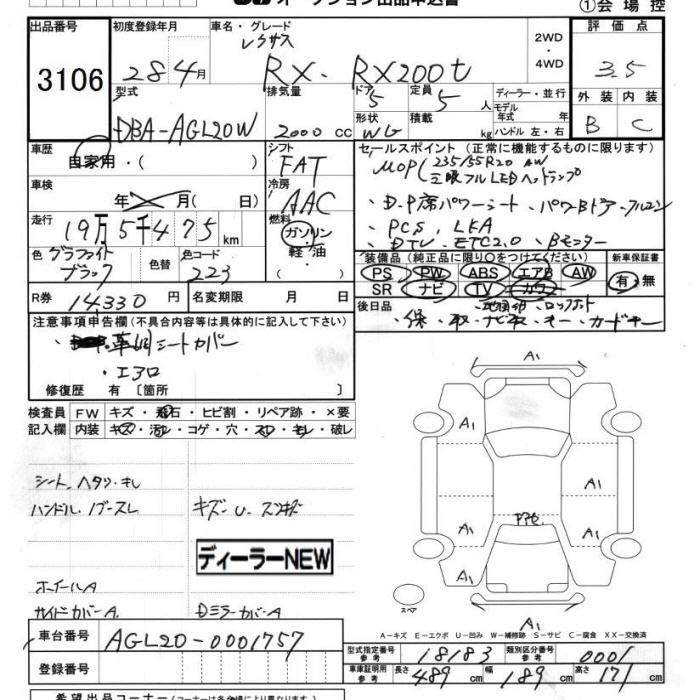 オークション出品申込書
①会場控
出品番号
3106
初度登録年月
28年4月
車名・グレード
レクサス
RX・RX200t
2WD
・
4WD
評価点
3.5
型式
DBA-AGL20W
排気量
2000 CC
ドア
5
定員
5人
ディーラー・並行
モデル年式 年
形状
WG
積載
kg
ハンドル 左・右
外装
B
内装
C
車歴
自家用・( )
シフト
FAT
車検
年 月( 日)
冷房
AAC
走行
19万5千475km
燃料
ガソリン
・
軽油
色
グラファイト
ブラック
色替
色コード
223
R券
14,330円
名変期限 月 日
セールスポイント(正常に機能するものに限ります)
MOP(235/55R20 AW
三眼フルLEDヘッドランプ
・D.P席パワーシート・パワーBドア・クルコン
・PCS, LKA
・DTV・ETC2.0・Bモニター
装備品(純正品に限り○をつけてください)
PS PW ABS エアB AW
SR ナビ TV カワ
新車保証書
有・無
後日品
・保・取・ナビ取・キー・カードキー
注意事項申告欄(不具合内容等は具体的に記入して下さい)
シートカバー
・エアロ
修復歴 有 〔箇所 〕
検査員
記入欄
FW キズ・飛石・ヒビ割・リペア跡・×要
内装 キズ・汚レ・コゲ・穴・スレ・キレ・破レ
シート、ヘタリ・キレ
ハンドル、ノブースレ
キズ・U・スリキズ
ディーラーNEW
ホイールA
サイドカバーA.
DミラーカバーA
A1
A1
A1
A1
A1
A1
A1
A1
スペア
A1
A−キズ E−エクボ U−凹み W−補修跡 S−サビ C−腐食 XX−交換済
車台番号
AGL20-0001757
登録番号
型式指定番号
参考
18183
類別区分番号
参考
0001
車庫証明用
参考
長さ 489cm
幅 189cm
高さ 171cm
希望出品コーナー